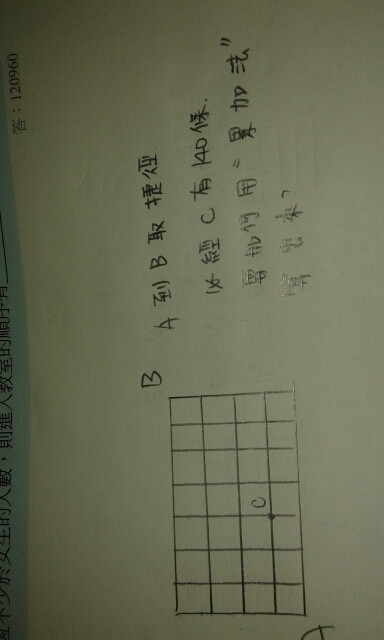 恆不少於女生的人數，則進入教室的順序有
答：120960
A 到 B 取捷徑
必經 C 有 140 條.
要如何用"累加法"
算出來?
B
C
A